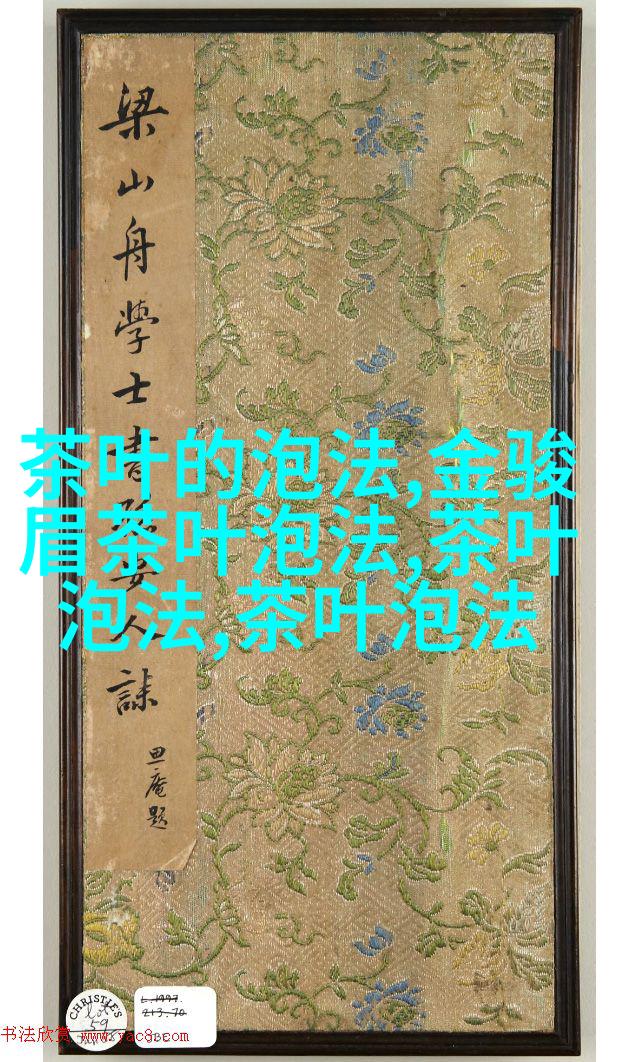 梁山舟學士書張安人誄
思庵題
茶叶的泡法,金骏
眉茶叶泡法,茶叶
泡法,茶叶泡法
CHRISTIE'S
lot
59
L.1997.
213.70
书法欣赏 www.yac8.com